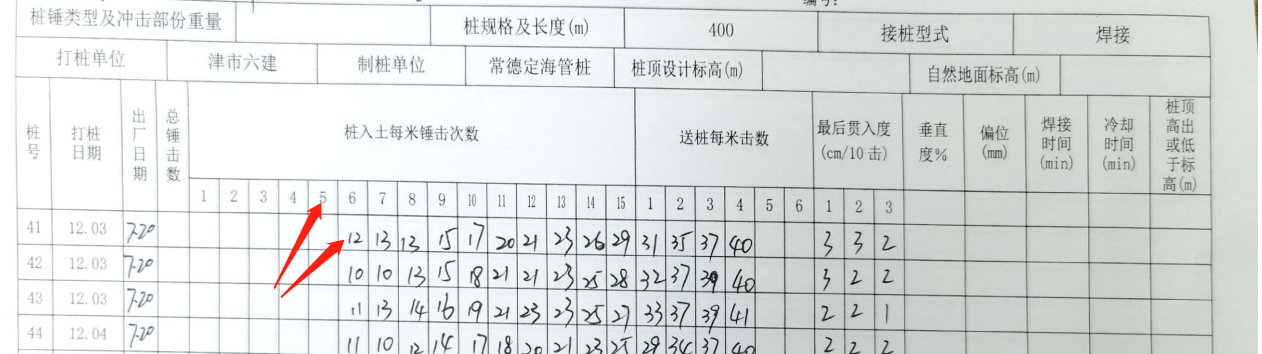 桩锤类型及冲击部份重量 桩规格及长度(m) 400 接桩型式 焊接
打桩单位 津市六建 制桩单位 常德定海管桩 桩顶设计标高(m) 自然地面标高(m)
桩号 打桩日期 出厂日期 总锤击数 桩入土每米锤击次数 送桩每米击数 最后贯入度(cm/10击) 垂直度% 偏位(mm) 焊接时间(min) 冷却时间(min) 桩顶高出或低于标高(m)
1 2 3 4 5 6 7 8 9 10 11 12 13 14 15 1 2 3 4 5 6 1 2 3
41 12.03 7-20 12 13 13 15 17 20 21 23 26 29 31 35 37 40 3 3 2
42 12.03 7-20 10 10 13 15 18 21 21 23 25 28 32 37 39 40 3 2 2
43 12.03 7-20 11 13 14 16 19 21 23 23 25 27 33 37 39 41 2 2 1
44 12.04 7-20 11 10 12 14 17 18 20 21 23 25 29 34 37 40 2 2 2